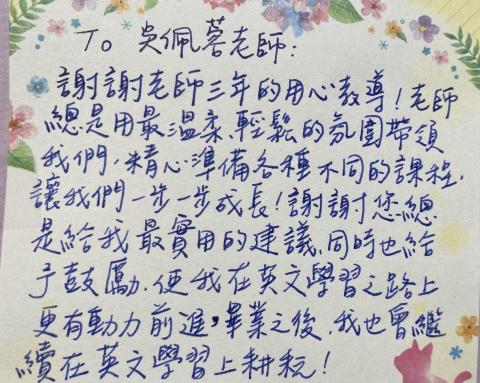 To 吳佩蓉老師：
謝謝老師三年的用心教導！老師
總是用最溫柔、輕鬆的氛圍帶領
我們，精心準備各種不同的課程，
讓我們一步一步成長！謝謝您總
是給我最實用的建議，同時也給
予鼓勵，使我在英文學習之路上
更有動力前進，畢業之後，我也會繼
續在英文學習上耕耘！